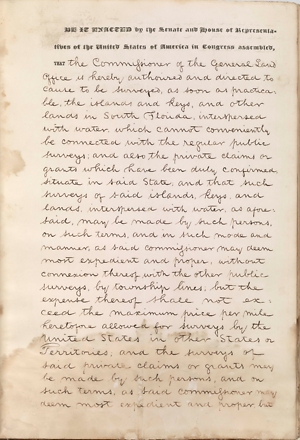 BE IT ENACTED by the Senate and House of Representa-
tives of the United States of America in Congress assembled,
THAT the Commissioner of the General Land
Office is hereby authorised and directed to
cause to be surveyed, as soon as practica-
ble, the islands and keys, and other
lands in South Florida, interspersed
with water which cannot conveniently
be connected with the regular public
surveys; and also the private claims or
grants which have been duly confirmed,
situate in said State, and that such
surveys of said islands, keys, and
lands, interspersed with water, as afore-
said, may be made by such persons,
on such terms, and in such mode and
manner, as said commissioner may deem
most expedient and proper, without
connexion thereof with the other public
surveys, by township lines; but the
expense thereof shall not ex-
ceed the maximum price per mile
heretofore allowed for surveys by the
United States in other States or
Territories, and the surveys of
said private claims or grants may
be made by such persons, and on
such terms, as said Commissioner may
deem most expedient and proper but